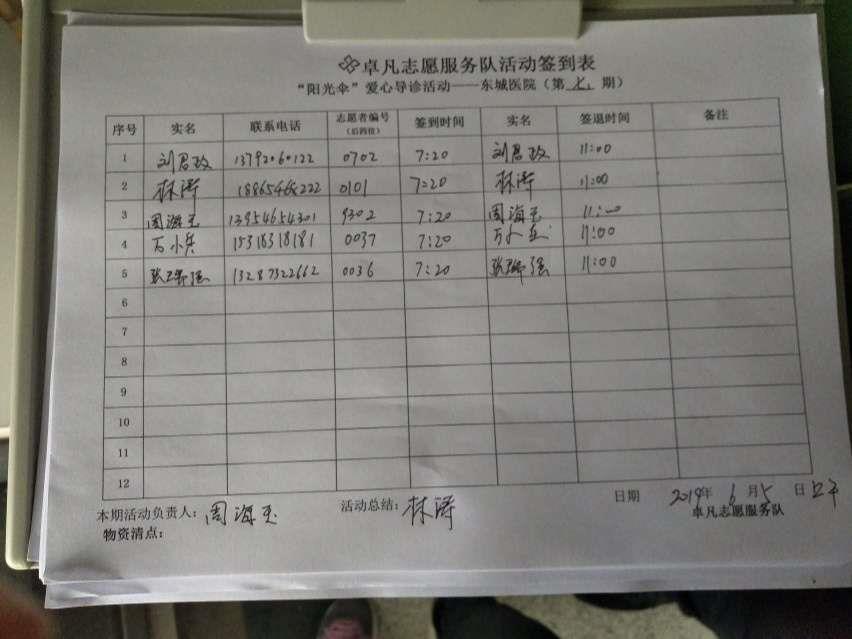 卓凡志愿服务队活动签到表
“阳光伞”爱心导诊活动——东城医院（第 七 期）
序号 实名 联系电话 志愿者编号（后四位） 签到时间 实名 签退时间 备注
1 刘君政 0702 7:20 刘君政 11:00
2 林涛 0101 7:20 林涛 11:00
3 周海玉 13954654301 9302 7:20 周海玉 11:00
4 万小兵 15318318181 0037 7:20 万小兵 11:00
5 13287322662 0036 7:20 11:00
6
7
8
9
10
11
12
本期活动负责人：周海玉 活动总结：林涛 日期 2019年 6月 5日
物资清点： 卓凡志愿服务队